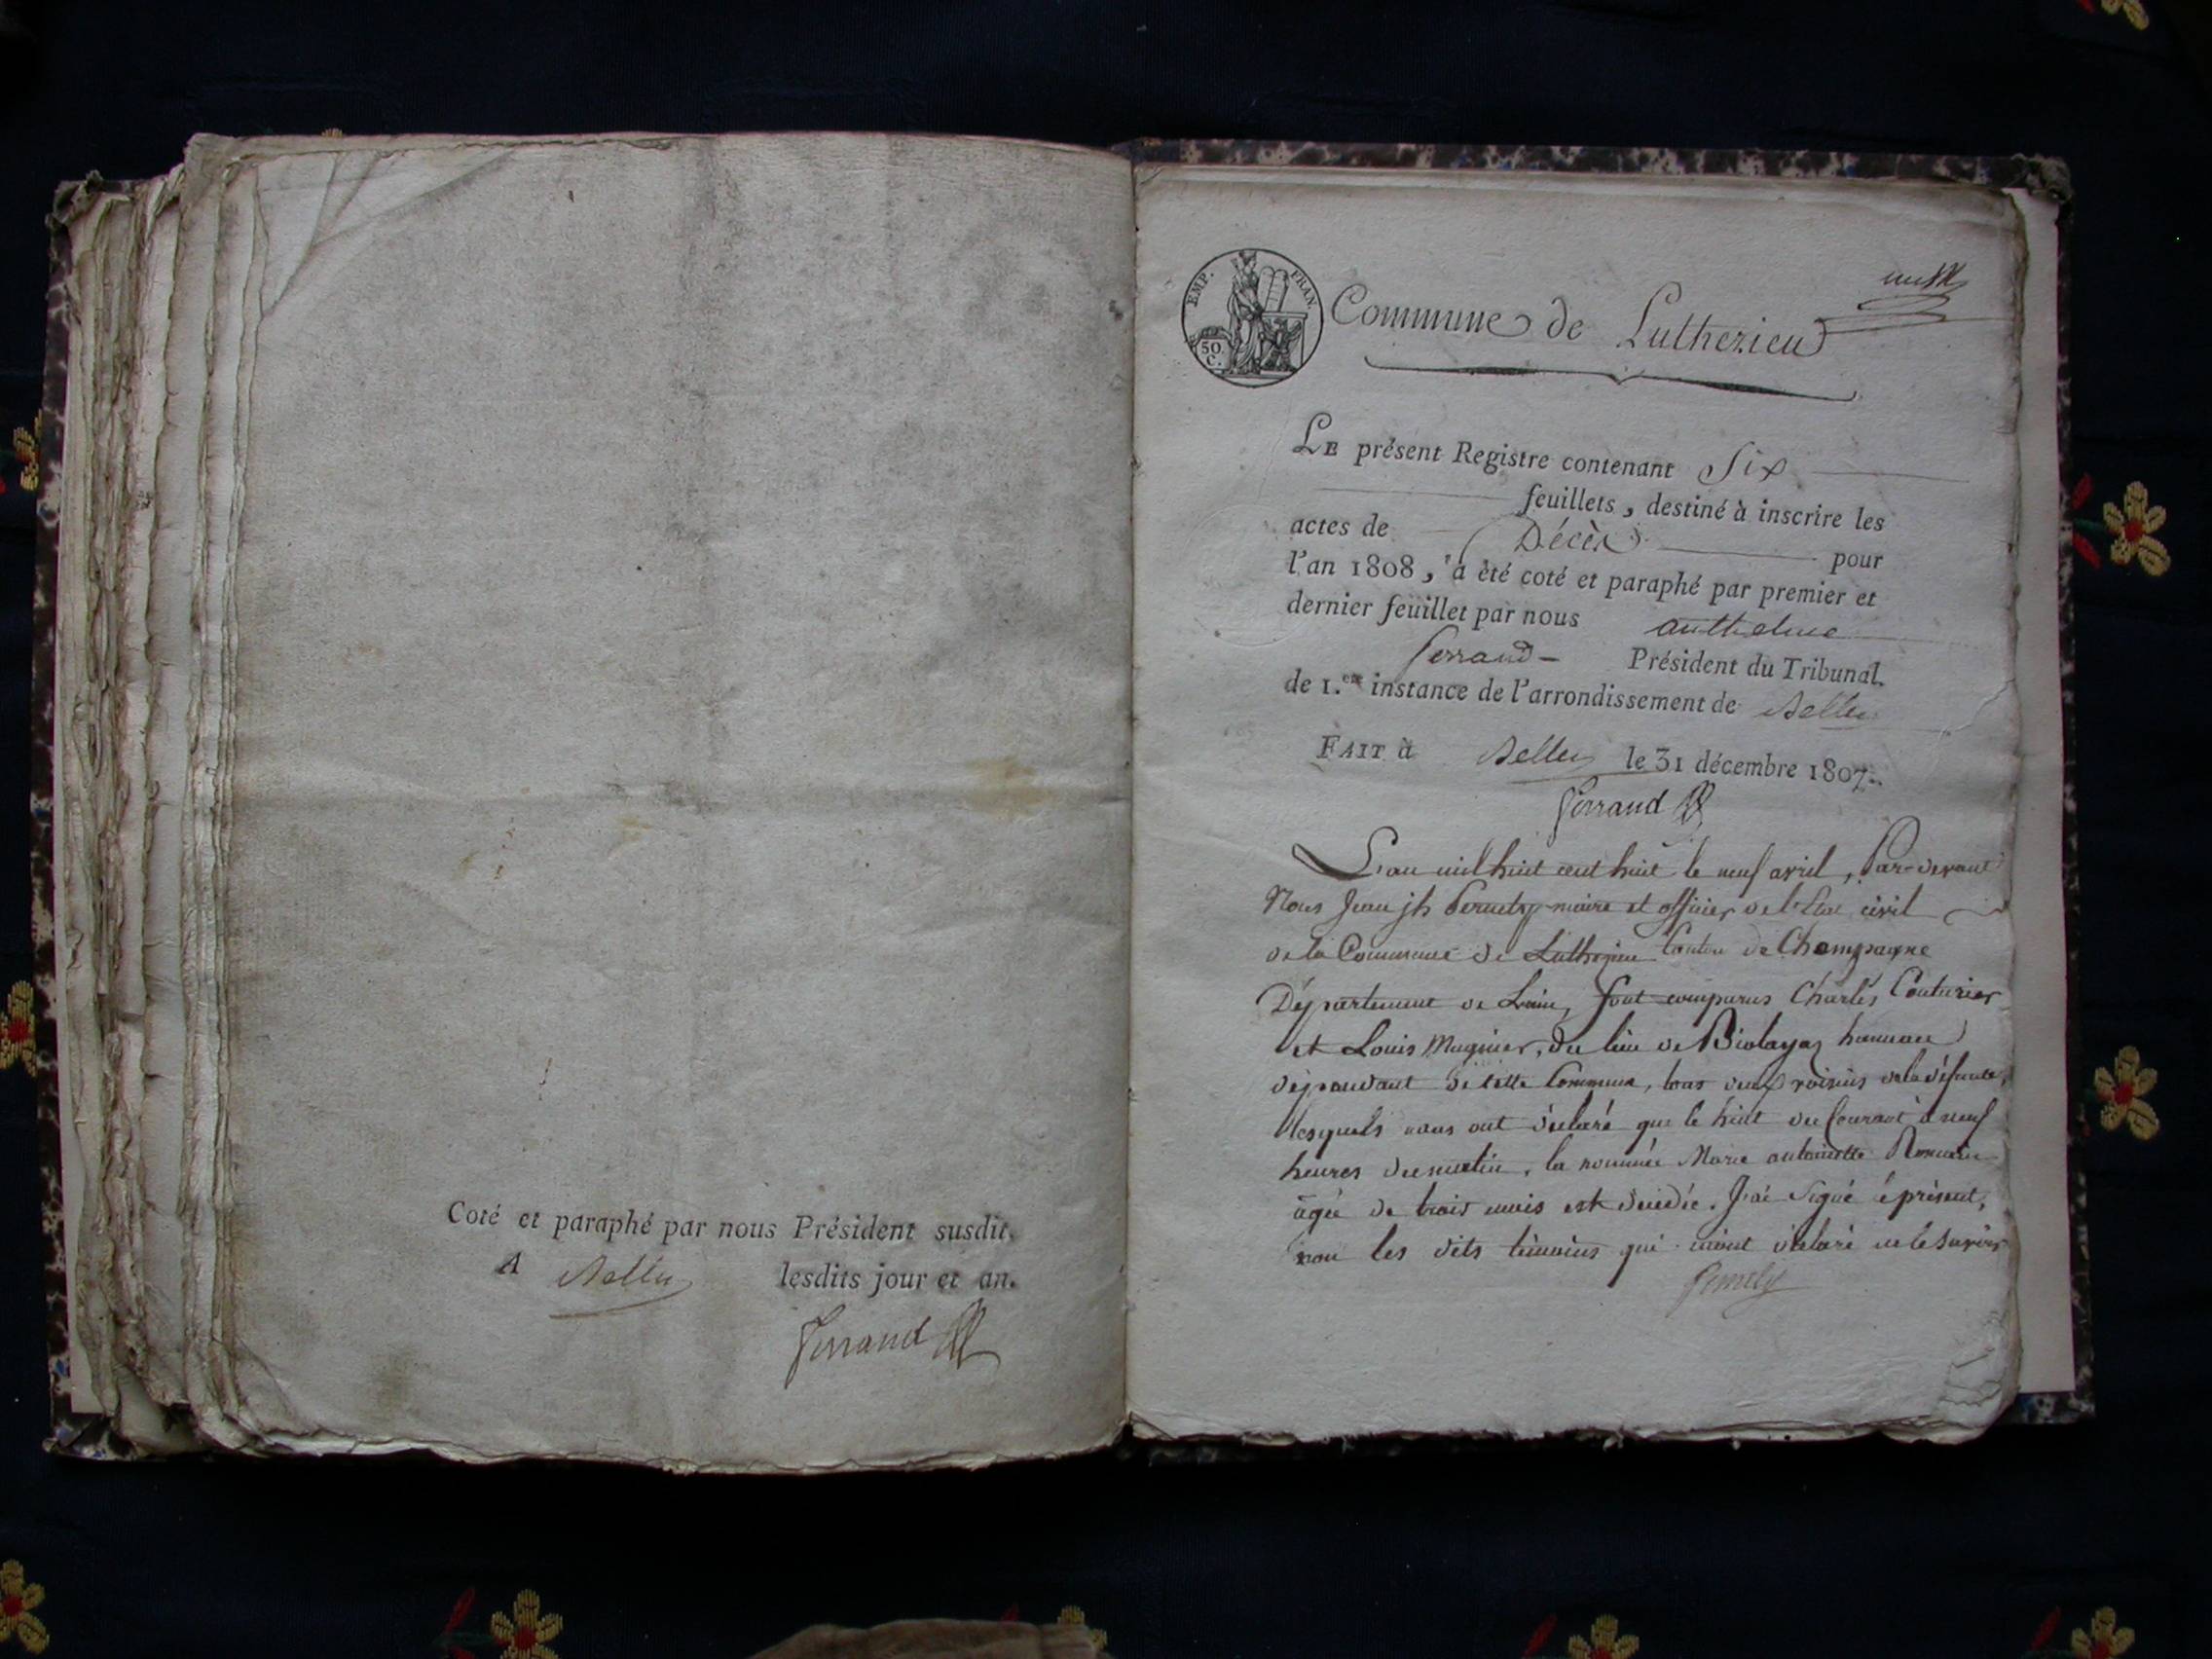 Coté et paraphé par nous Président susdit.
A Belley lesdits jour et an.
Ferrand
EMP. FRAN.
50.
C.
Commune de Luthezieu
LE présent Registre contenant Six
feuillets, destiné à inscrire les
actes de Décès pour
l'an 1808, a été coté et paraphé par premier et
dernier feuillet par nous anthelme
ferrand Président du Tribunal.
de 1.ere instance de l'arrondissement de Belley
FAIT à Belley le 31 décembre 1807.
Ferrand
L'an mil huit cent huit le neuf avril, Par-devant
Nous Jean jh maire et officier de l'Etat civil
de la Commune de Luthezieu Canton de Champagne
Département de Lain, sont comparus Charles Couturier
et Louis Magnier, du lieu de Biolayaz hameau
dépendant de cette Commune, tous deux voisins de la défunte,
lesquels nous ont déclaré que le huit du Courant à neuf
heures du matin, la nommée Marie antoinette
agée de trois mois est decedée. J'ai Signé le présent,
non les dits témoins qui m'ont déclaré ne le savoir